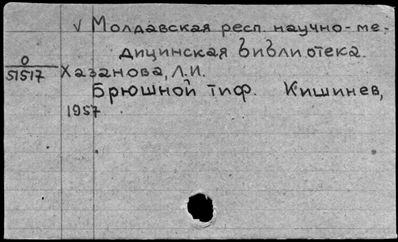 √ Молдавская респ. научно-ме-
дицинская библиотека.
О
51517
Хазанова, Л.И.
Брюшной тиф. Кишинев,
1957